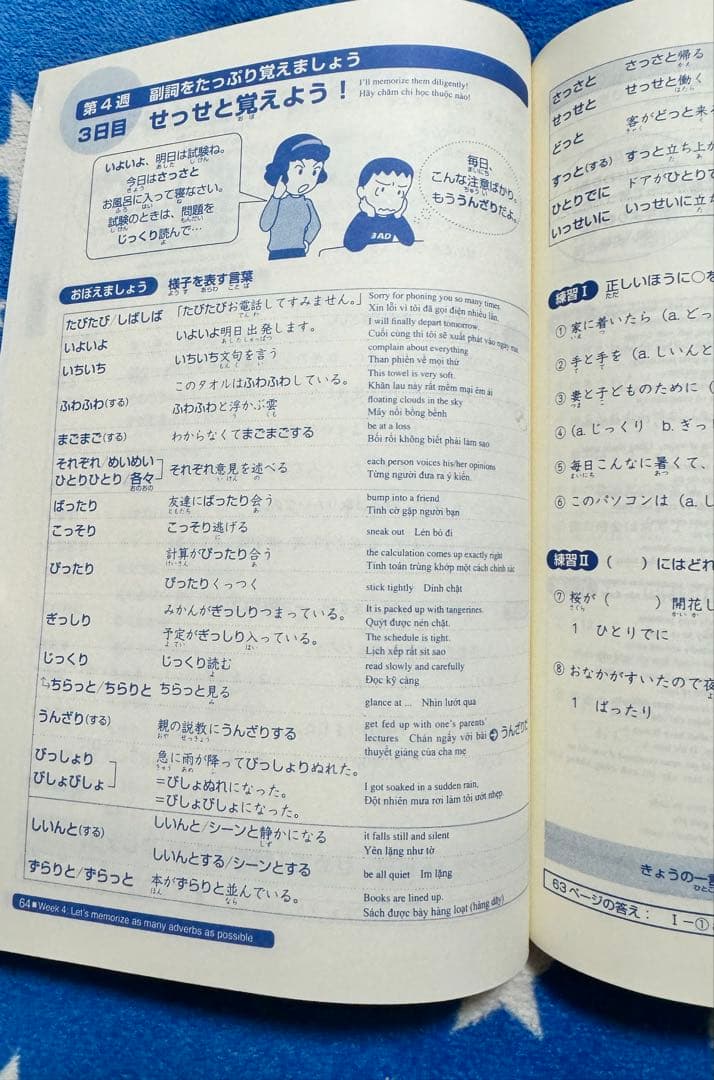 第4週 副詞をたっぷり覚えましょう
3日目 せっせと覚えよう！
I'll memorize them diligently!
Hãy chăm chỉ học thuộc nào!
いよいよ、明日は試験ね。
今日はさっさと
お風呂に入って寝なさい。
試験のときは、問題を
じっくり読んで…
毎日、
こんな注意ばかり。
もううんざりだよ。
BAD
おぼえましょう 様子を表す言葉
たびたび/しばしば 「たびたびお電話してすみません。」 Sorry for phoning you so many times.
Xin lỗi vì tôi đã gọi điện nhiều lần.
いよいよ いよいよ明日出発します。 I will finally depart tomorrow.
Cuối cùng thì tôi sẽ xuất phát vào ngày mai
いちいち いちいち文句を言う complain about everything
Than phiền về mọi thứ
ふわふわ(する) このタオルはふわふわしている。 This towel is very soft.
Khăn lau này rất mềm mại êm ái
ふわふわと浮かぶ雲 floating clouds in the sky
Mây nổi bồng bềnh
まごまご(する) わからなくてまごまごする be at a loss
Bối rối không biết phải làm sao
それぞれ/めいめい
ひとりひとり/各々 それぞれ意見を述べる each person voices his/her opinions
Từng người đưa ra ý kiến.
ばったり 友達にばったり会う bump into a friend
Tình cờ gặp người bạn
こっそり こっそり逃げる sneak out Lén bỏ đi
ぴったり 計算がぴったり合う the calculation comes up exactly right
Tính toán trùng khớp một cách chính xác
ぴったりくっつく stick tightly Dính chặt
ぎっしり みかんがぎっしりつまっている。 It is packed with tangerines.
Quýt được nén chặt.
予定がぎっしり入っている。 The schedule is tight.
Lịch xếp rất sít sao
じっくり じっくり読む read slowly and carefully
Đọc kỹ càng
ちらっと/ちらりと ちらっと見る glance at ... Nhìn lướt qua
うんざり(する) 親の説教にうんざりする get fed up with one's parents'
lectures Chán ngấy với bài
thuyết giảng của cha mẹ
びっしょり
びしょびしょ 急に雨が降ってびっしょりぬれた。
＝びしょぬれになった。 I got soaked in a sudden rain,
＝びしょびしょになった。 Đột nhiên mưa rơi làm tôi ướt nhẹp.
しいんと(する) しいんと/シーンと静かになる it falls still and silent
Yên lặng như tờ
しいんとする/シーンとする be all quiet Im lặng
ずらりと/ずらっと 本がずらりと並んでいる。 Books are lined up.
Sách được bày hàng loạt (hàng dãy)
64■Week 4: Let's memorize as many adverbs as possible
さっさと さっさと帰る
せっせと せっせと働く
どっと 客がどっと来る
すっと(する) すっと立ち上が
ひとりでに ドアがひとりで
いっせいに いっせいに立ち
練習Ⅰ 正しいほうに○を
① 家に着いたら (a. どっ
② 手と手を (a. しいんと
③ 妻と子どものために (
④ (a. じっくり b. ぎっ
⑤ 毎日こんなに暑くて、
⑥ このパソコンは (a. し
練習Ⅱ ( )にはどれ
⑦ 桜が ( ) 開花し
1 ひとりでに
⑧ おなかがすいたので夜
1 ばったり
きょうの一言
63ページの答え： Ⅰ－①